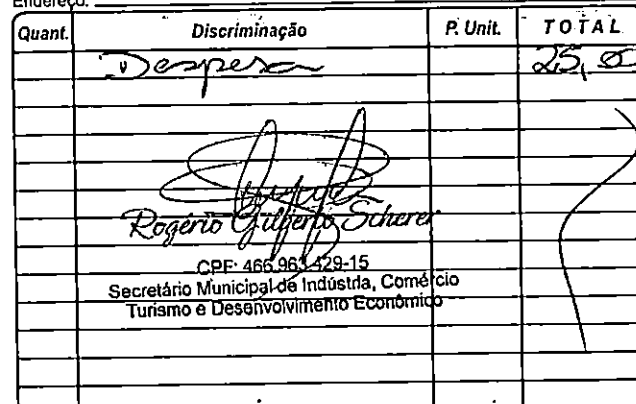 Endereço:
Quant. Discriminação P. Unit. TOTAL
Despesa 25,00
Rogério Gilberto Scherer
CPF: 466.963.429-15
Secretário Municipal de Indústria, Comércio
Turismo e Desenvolvimento Econômico